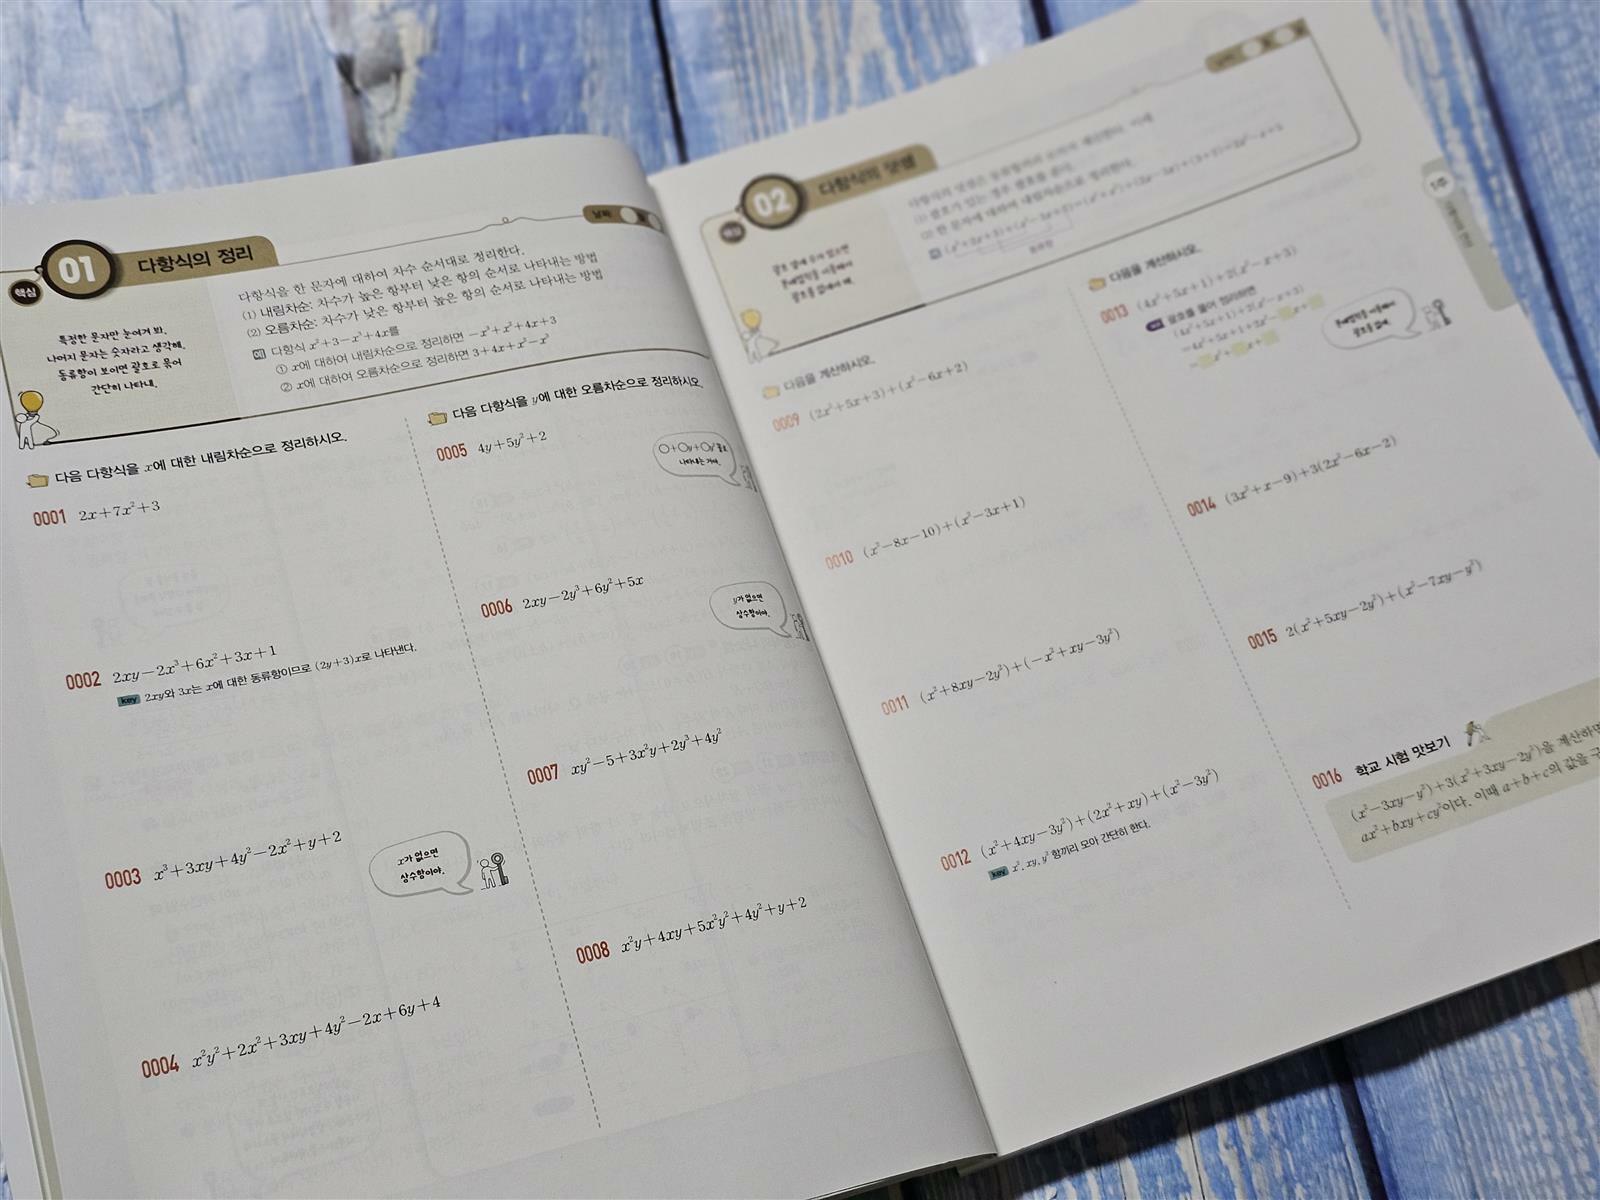 핵심
01 다항식의 정리
날짜
특정한 문자만 눈여겨 봐.
나머지 문자는 숫자라고 생각해.
동류항이 보이면 괄호로 묶어
간단히 나타내.
다항식을 한 문자에 대하여 차수 순서대로 정리한다.
(1) 내림차순: 차수가 높은 항부터 낮은 항의 순서로 나타내는 방법
(2) 오름차순: 차수가 낮은 항부터 높은 항의 순서로 나타내는 방법
예 다항식 x²+3-x³+4x를
① x에 대하여 내림차순으로 정리하면 -x³+x²+4x+3
② x에 대하여 오름차순으로 정리하면 3+4x+x²-x³
다음 다항식을 x에 대한 내림차순으로 정리하시오.
0001 2x+7x²+3
0002 2xy-2x³+6x²+3x+1
key 2xy와 3x는 x에 대한 동류항이므로 (2y+3)x로 나타낸다.
0003 x³+3xy+4y²-2x²+y+2
x가 없으면
상수항이야.
0004 x²y²+2x²+3xy+4y²-2x+6y+4
다음 다항식을 y에 대한 오름차순으로 정리하시오.
0005 4y+5y²+2
○+○y+○y²꼴로
나타내는 거야.
0006 2xy-2y³+6y²+5x
y가 없으면
상수항이야.
0007 xy²-5+3x²y+2y³+4y²
0008 x²y+4xy+5x²y²+4y²+y+2
핵심
02 다항식의 덧셈
괄호 앞에 수가 있으면
분배법칙을 이용해서
괄호를 없애야 해.
(1) 괄호가 있는 경우 괄호를 푼다.
(2) 한 문자에 대하여 내림차순으로 정리한다.
다음을 계산하시오.
0009 (2x²+5x+3)+(x²-6x+2)
0010 (x²-8x-10)+(x²-3x+1)
0011 (x²+8xy-2y²)+(-x²+xy-3y²)
0012 (x²+4xy-3y²)+(2x²+xy)+(x²-3y²)
key x², xy, y² 항끼리 모아 간단히 한다.
다음을 계산하시오.
0013 (4x²+5x+1)+2(x²-x+3)
괄호를 풀어 정리하면
(4x²+5x+1)+2(x²-x+3)
분배법칙을 이용해서
괄호를 없애.
0014 (3x²+x-9)+3(2x²-6x-2)
0015 2(x²+5xy-2y²)+(x²-7xy-y²)
0016 학교 시험 맛보기
(x²-3xy-y²)+3(x²+3xy-2y²)을 계산하면
ax²+bxy+cy²이다. 이때 a+b+c의 값을 구